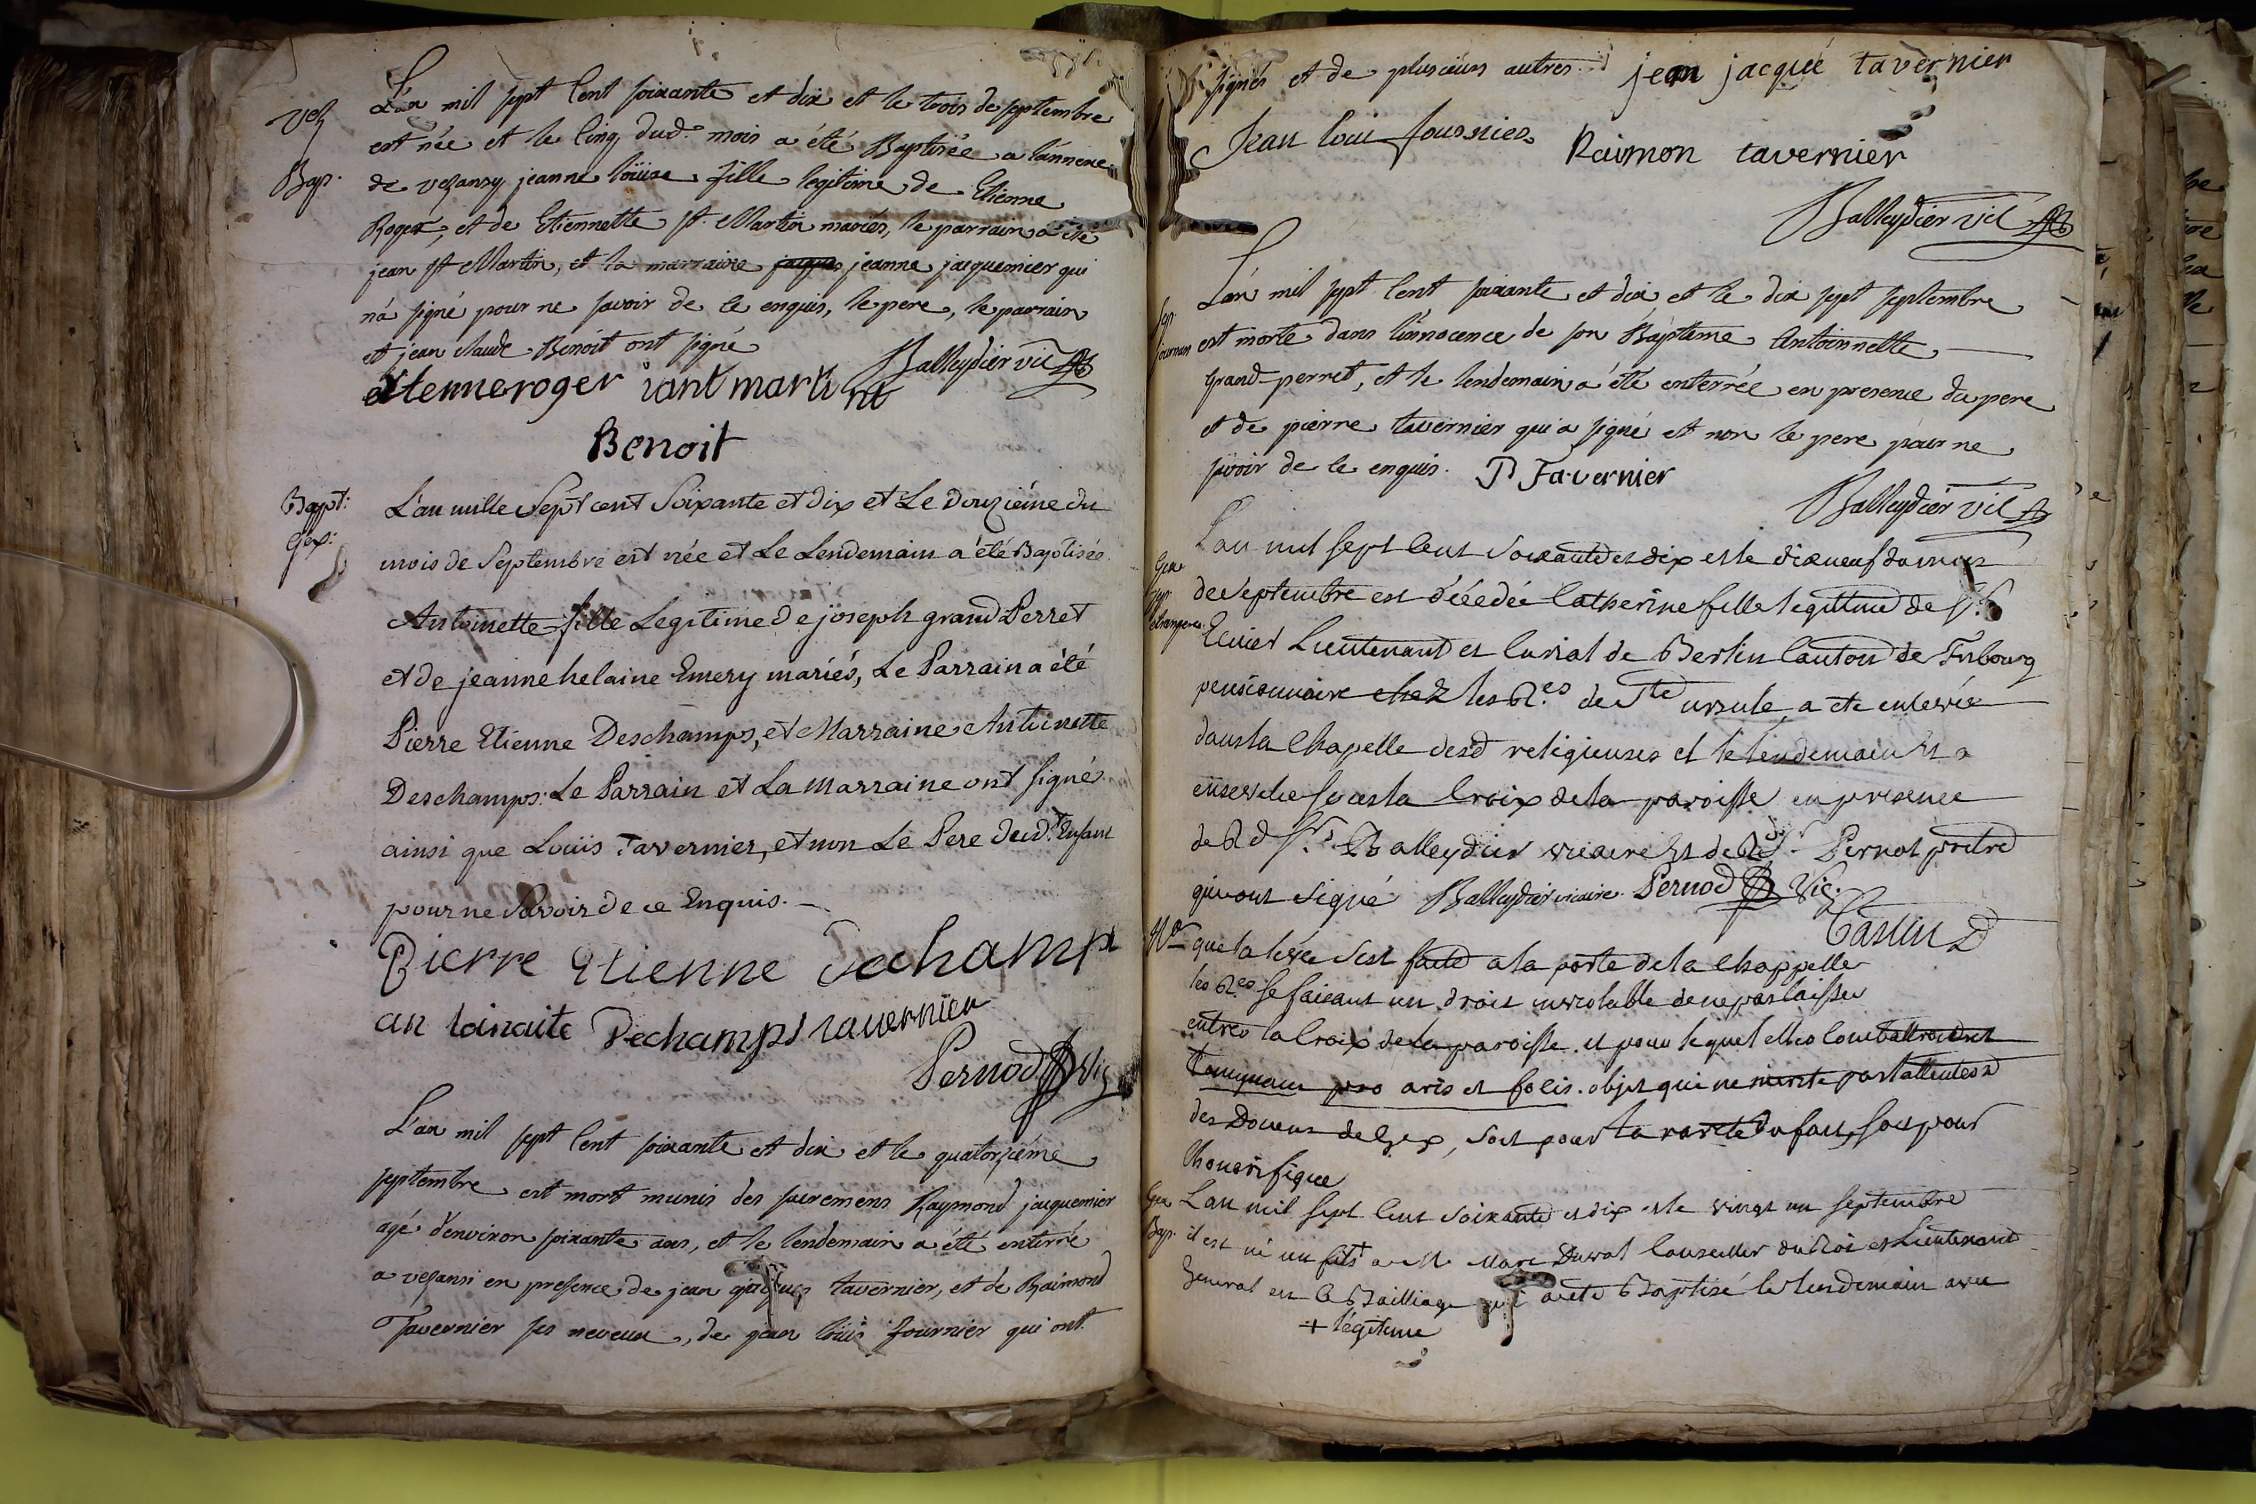 Vez
L'an mil sept cent soixante et dix et le trois de septembre
est née et le cinq dud. mois a été Baptisée a l'annexe
Bap.
de vezansy jeanne loüise fille legitime de Etienne
Roger, et de Etiennette st. Martin mariés, le parrain a été
jean st Martin, et la marraine jeanne jaquemier qui
n'a signé pour ne savoir de ce enquis, le pere, le parrain
et jean claude Benoit ont signé
Balleydier vic
etienne roger iant martint
Benoit
Bapt:
Gex:
L'an mille Sept cent Soixante et dix et Le Douziéme du
mois de Septembre est née et Le Lendemain a été Baptisée
Antoinette fille Legitime de joseph grand Perret
et de jeanne helaine Emery mariés, Le Parrain a été
Pierre Etienne Deschamps, et Marraine Antoinette
Deschamps: Le Parrain et La Marraine ont signé
ainsi que Loüis Tavernier, et non Le Pere dud.t Enfant
pour ne Savoir de ce Enquis.
Pierre Etienne Dechamp
an toinaite Dechamps tavernier
Pernod Vic
L'an mil sept cent soixante et dix et le quatorziéme
septembre est mort munis des sacremens Raymond jaquemier
agé d'environ soixante ans, et le lendemain a été enterré
a vezansi en presence de jean jaques tavernier, et de Raimond
Tavernier ses neveux, de jean loüis fournier qui ont
signés et de plusieurs autres. jean jacque tavernier
Jean loui fournier
Raimon tavernier
Balleydier vic
L'an mil sept cent soixante et dix et le dix sept septembre
Sep.
est morte dans l'innocence de son Baptême Antoinnette
grand-perret, et le lendemain a été enterrée en presence du pere
et de pierre tavernier qui a signé et non le pere pour ne
savoir de ce enquis. P Tavernier
Balleydier vic
L'an mil sept cent soixante et dix et le dixneuf du mois
Gex
Sep.
etrangere
de Septembre est décédée Catherine fille legitime de Sr.
Lieutenant et Curial de Canton de Fribourg
pensionnaire chez les R.es de Ste ursule, a ete enlevée
dans la Chapelle desd religieuses et le lendemain Et a
ensevelie sous la Croix de la paroisse en presence
de Rd Sr. Balleydier vicaire Et de Rd Sr. Pernot pretre
qui ont signé Balleydier vicaire. Pernod Vic.
Nta
que la levée s'est faite a la porte de la Chappelle
les R.es se faisant un droit inviolable de ne pas laisser
entrer la Croix de la paroisse. et pour lequel elles combattroient
pro aris et focis. objet qui ne merite pas l'attention
des Doiens de Gex, soit pour la rareté du fait, soit pour
l'honorifique
Gex
L'an mil sept cent soixante et dix et le vingt un septembre
Bap.
il est né un fils + a M. Marc Duval Conseiller du Roi et Lieutenant
General en ce Bailliage qui a eté Baptisé le lendemain avec
+ légitime